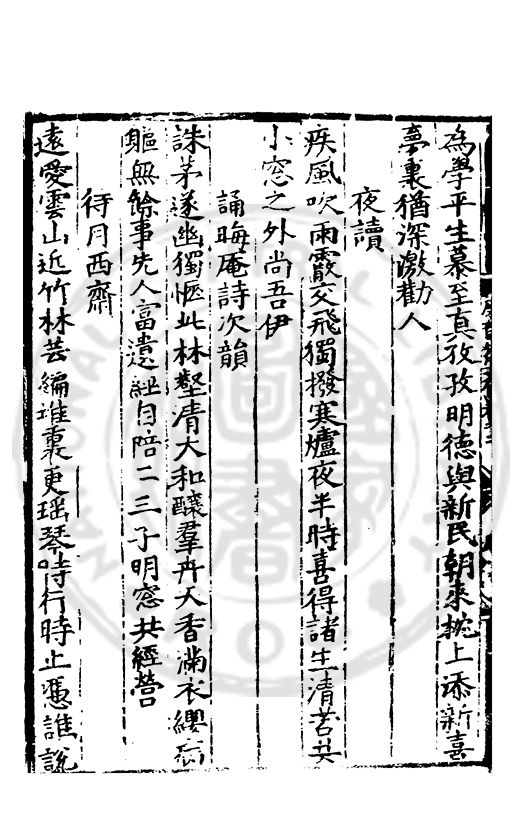 為學平生慕至真孜孜明德與新民朝來枕上添新喜
夢裏猶深激勸人
夜讀
疾風吹雨霰交飛獨撥寒爐夜半時喜得諸生清苦共
小窓之外尚吾伊
誦晦庵詩次韻
誅茅遂幽獨愜此林壑清大和釀羣卉天香滿衣纓病
軀無餘事先人富遺經自陪二三子明窓共經營
待月西齋
遠愛雲山近竹林芸編堆裏更瑶琴時行時止憑誰說